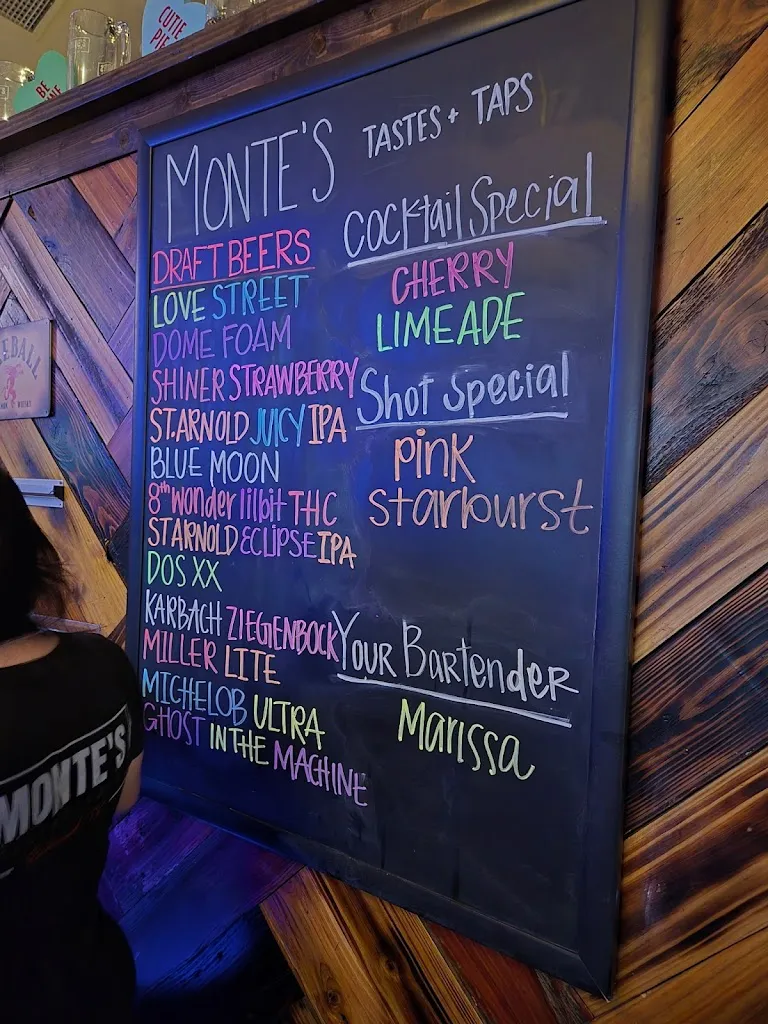 CUTIE
PIE
BE
MONTE'S TASTES + TAPS
DRAFT BEERS
LOVE STREET
DOME FOAM
SHINER STRAWBERRY
ST.ARNOLD JUICY IPA
BLUE MOON
8th wonder lilbit THC
STARNOLD ECLIPSE IPA
DOS XX
KARBACH ZIEGENBOCK
MILLER LITE
MICHELOB ULTRA
GHOST IN THE MACHINE
Cocktail Special
CHERRY
LIMEADE
Shot Special
pink
starburst
Your Bartender
Marissa
MONTE'S